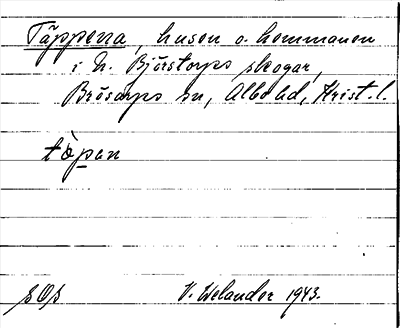 Täppena, husen o. hemmanen
i n. Björstorps skogar,
Brösarps sn, Albo hd, Krist. l.
tä̀pan
sOs V. Welander 1943.